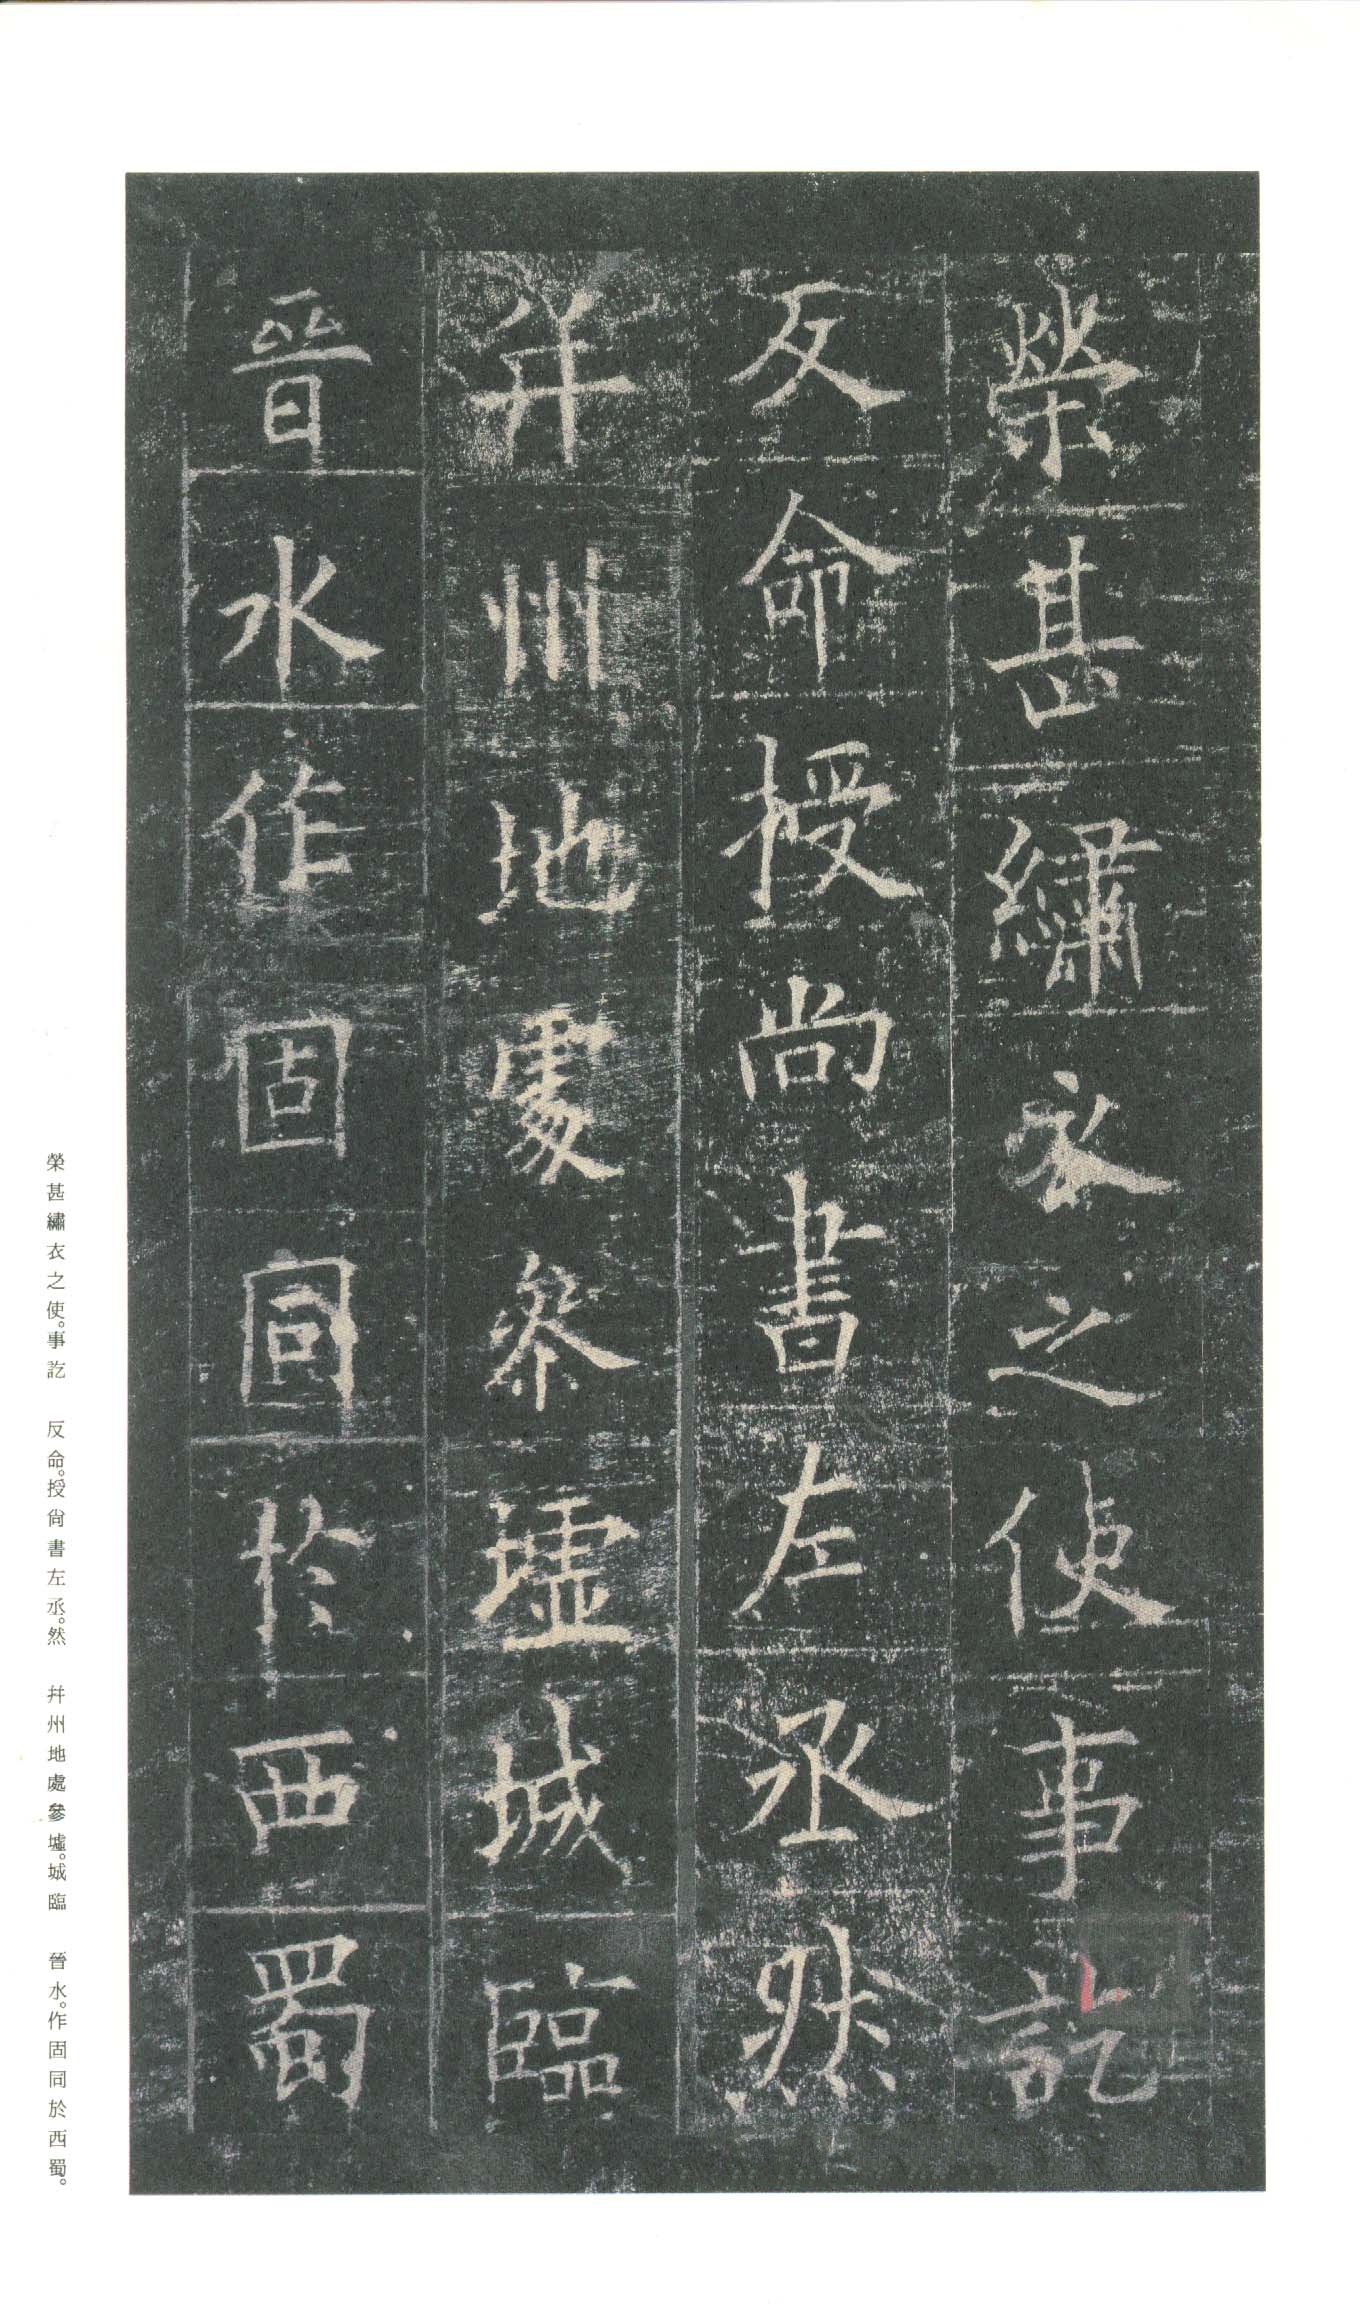 榮甚繡衣之使事訖
反命授尚書左丞然
幷州地處參墟城臨
晉水作固同於西蜀
榮甚繡衣之使。事訖　反命。授尙書左丞。然　幷州地處參墟。城臨　晉水。作固同於西蜀。